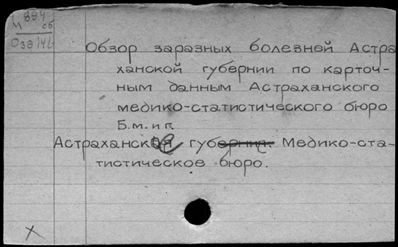 894
М об
Озв146
Обзор заразных болезней Астра
ханской губернии по карточ-
ным данным Астраханского
медико-статистического бюро
Б.м. и г.
Астраханск губ Медико-ста-
тистическое бюро.
X